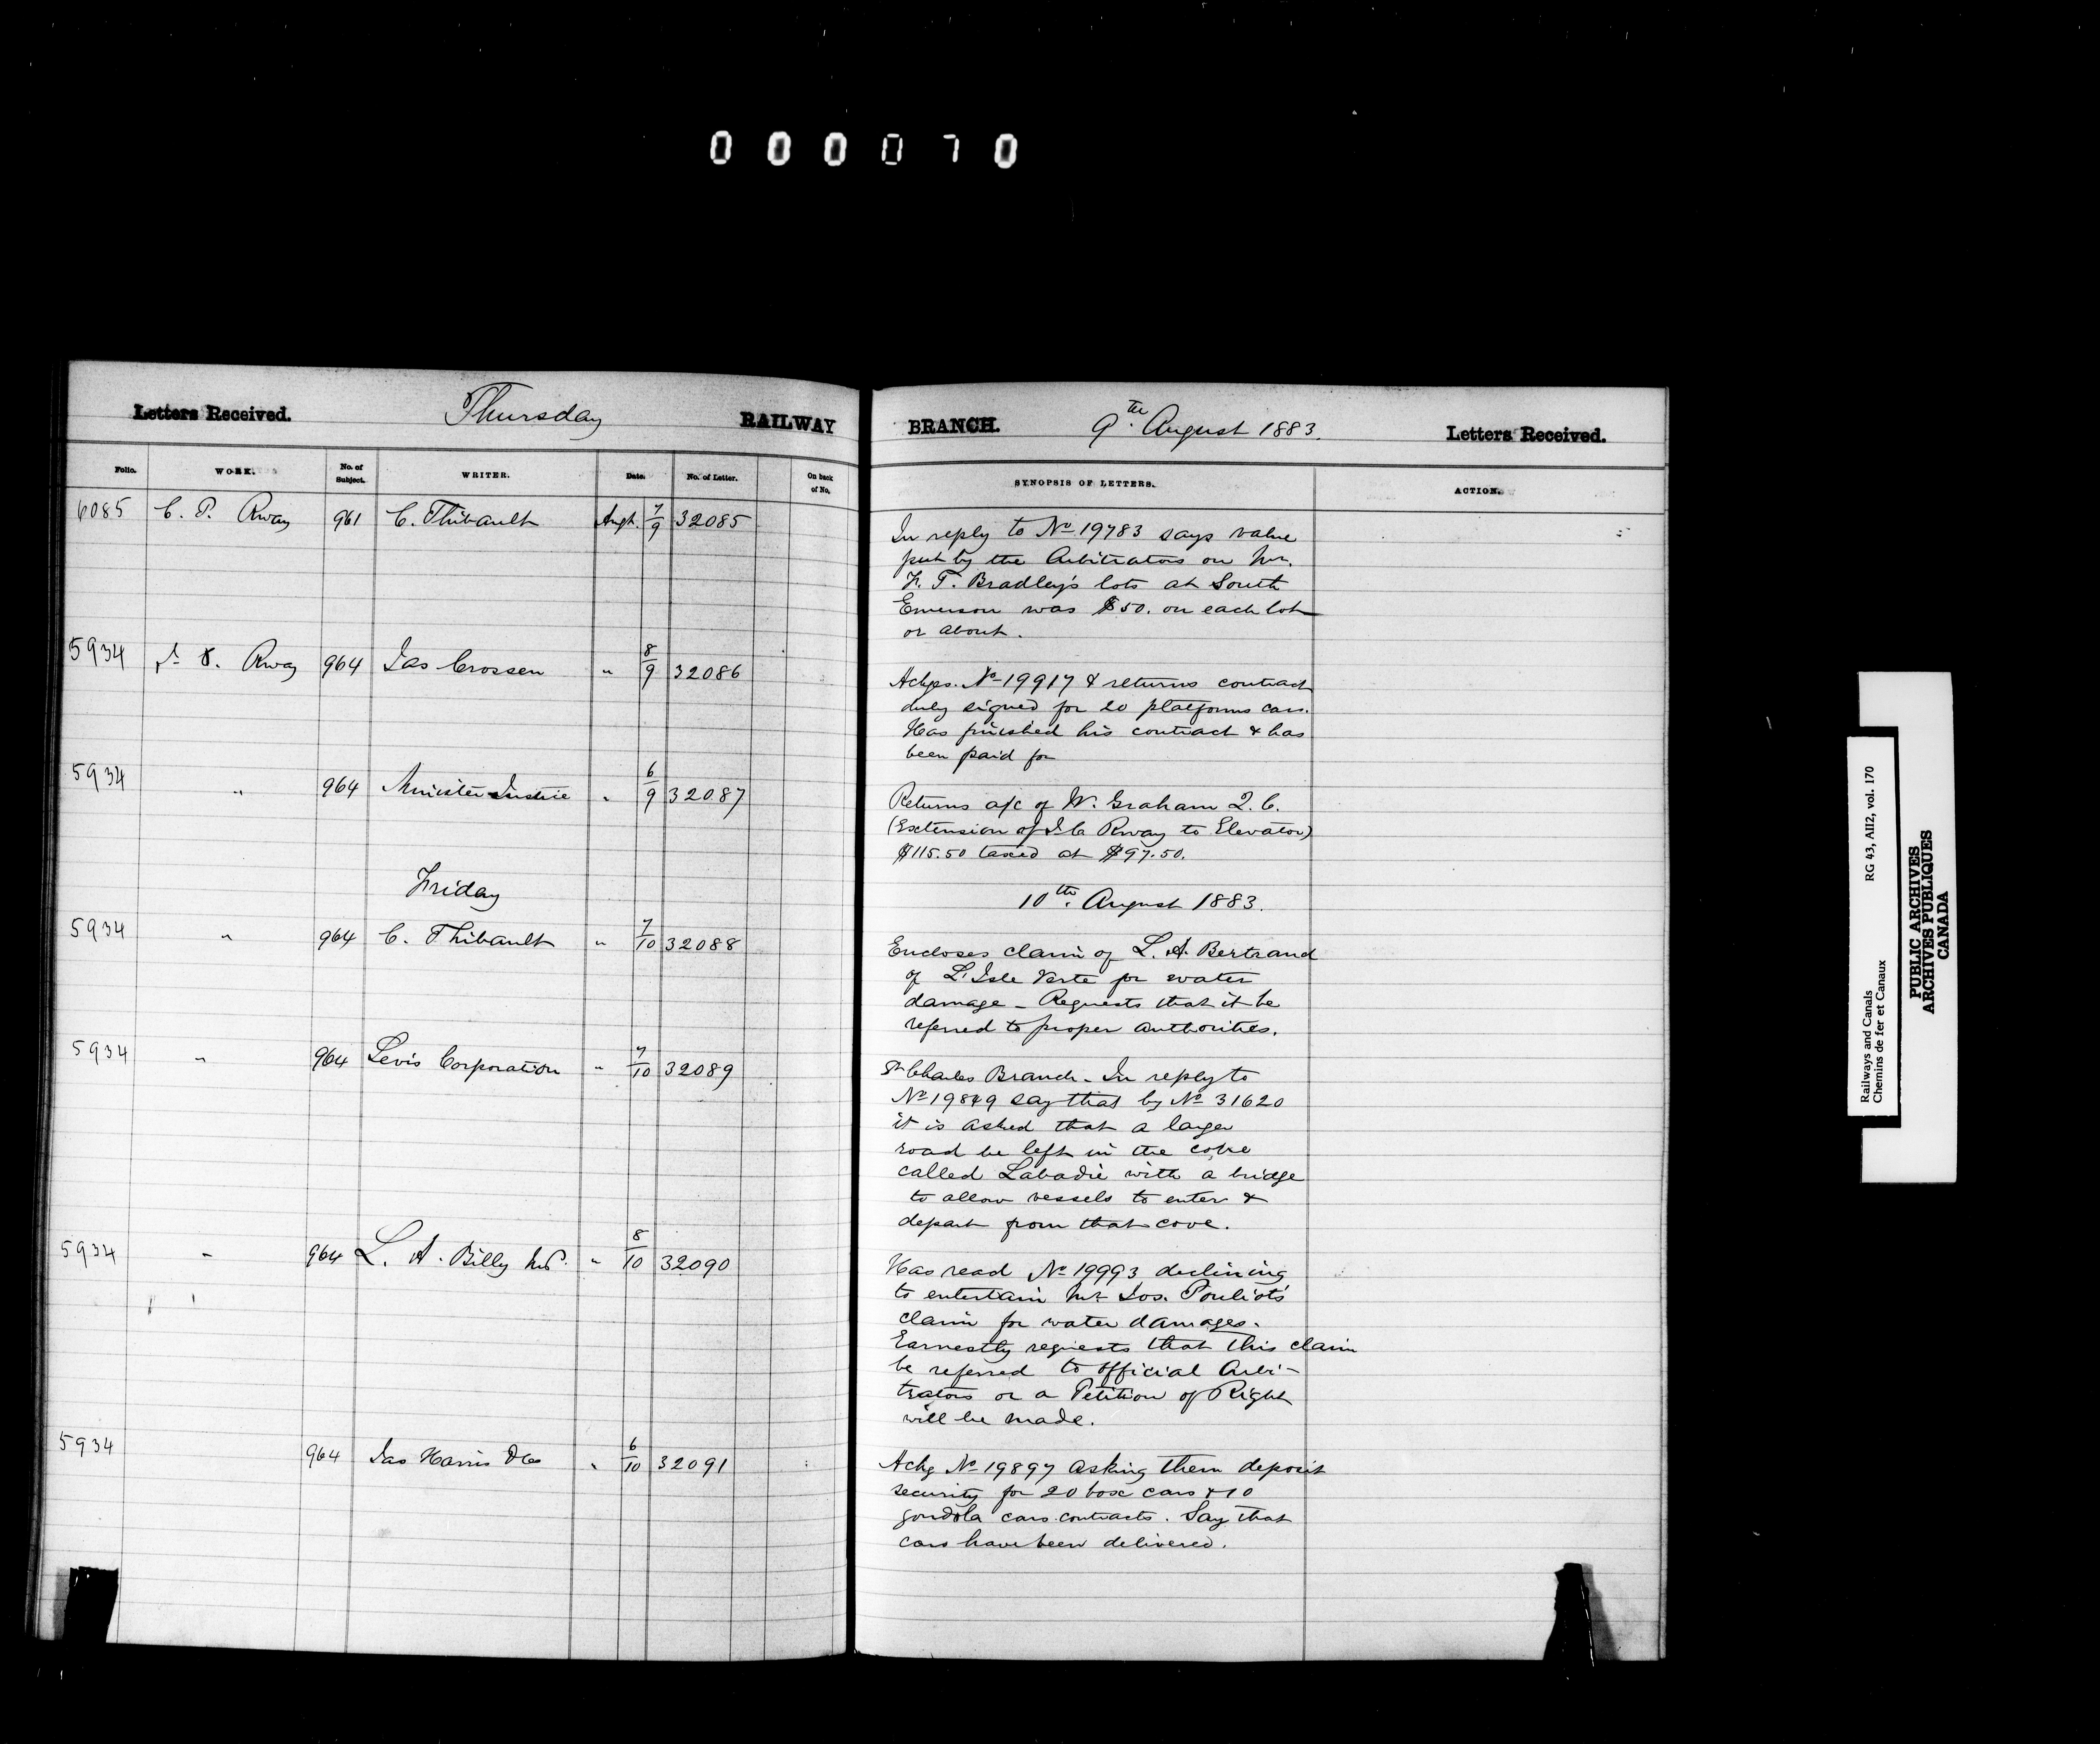 000070
Letters Received. Thursday RAILWAY BRANCH. 9th. August 1883. Letters Received.
Folio. WORK. No. of Subject. WRITER. Date. No. of Letter. On back of No. SYNOPSIS OF LETTERS. ACTION.
6085 C. P. Rway 961 C. Thibault Augt. 7/9 32085
In reply to No 19783 says value
put by the Arbitrators on Mr.
F. T. Bradley's lots at South
Emerson was $50. on each lot
or about.
5934 Rway 964 Jas Crossen " 8/9 32086
Ackges. No 19917 & returns contract
duly signed for 20 platforms cars.
Has finished his contract & has
been paid for
5934 " 964 Minister Justice " 6/9 32087
Returns a/c of W. Graham Q.C.
(Extension of I C Rway to Elevator)
$115.50 taxed at $97.50.
Friday 10th. August 1883.
5934 " 964 C. Thibault " 7/10 32088
Encloses claim of L. A. Bertrand
of L'Isle Verte for water
damage - Requests that it be
referred to proper authorities.
5934 " 964 Levis Corporation " 7/10 32089
St Charles Branch - In reply to
No 19849 say that by No 31620
it is asked that a larger
road be left in the cove
called Labadie with a bridge
to allow vessels to enter &
depart from that cove.
5934 " 964 L. A. Billy M.P. " 8/10 32090
Has read No 19993 declining
to entertain Mr Jos. Pouliot's
claim for water damages.
Earnestly requests that this claim
be referred to official Arbi-
trators or a Petition of Right
will be made.
5934 964 Jas Harris & Co " 6/10 32091
Ackg No 19897 asking them deposit
security for 20 box cars & 10
gondola cars contracts. Say that
cars have been delivered.
Railways and Canals RG 43, AII2, vol. 170
Chemins de fer et Canaux
PUBLIC ARCHIVES
ARCHIVES PUBLIQUES
CANADA